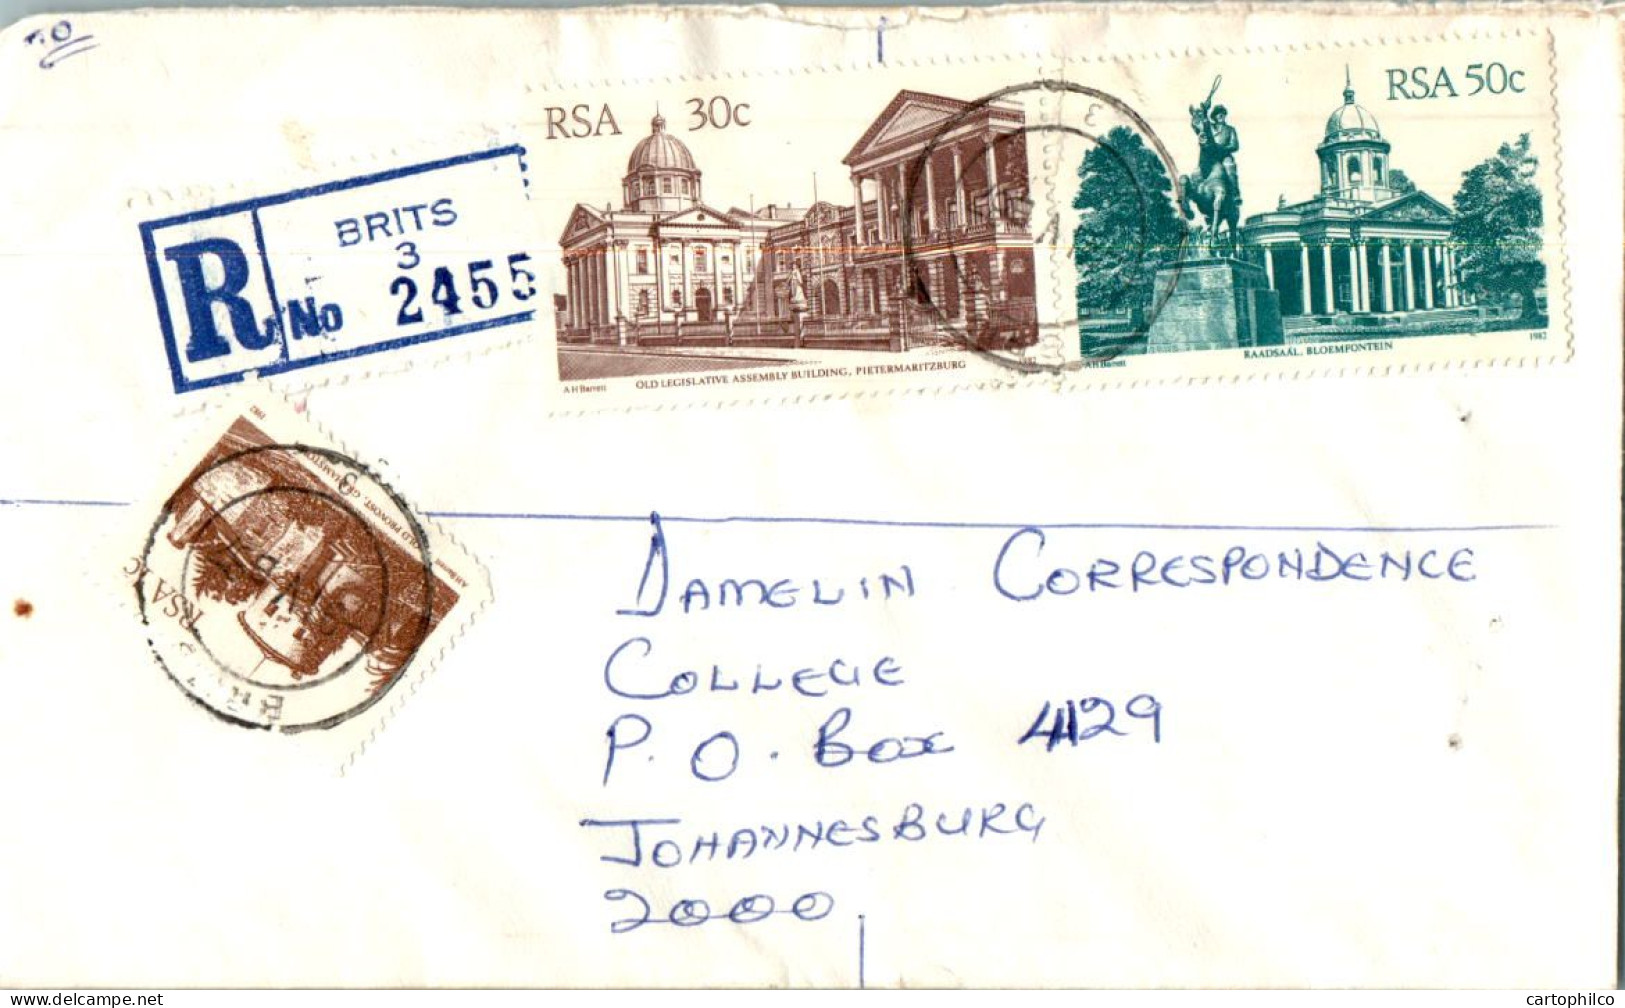 RSA 30c
RSA 50c
BRITS
3
R No 2455
A H Barrett
OLD LEGISLATIVE ASSEMBLY BUILDING, PIETERMARITZBURG
A H Barrett
RAADSAAL, BLOEMFONTEIN
1982
3
1982
OLD PROVOST,
A H Barrett
RSA 1c
3
DAMELIN CORRESPONDENCE
COLLEGE
P. O. Box 4129
JOHANNESBURG
2000
www.delcampe.net
cartophilco